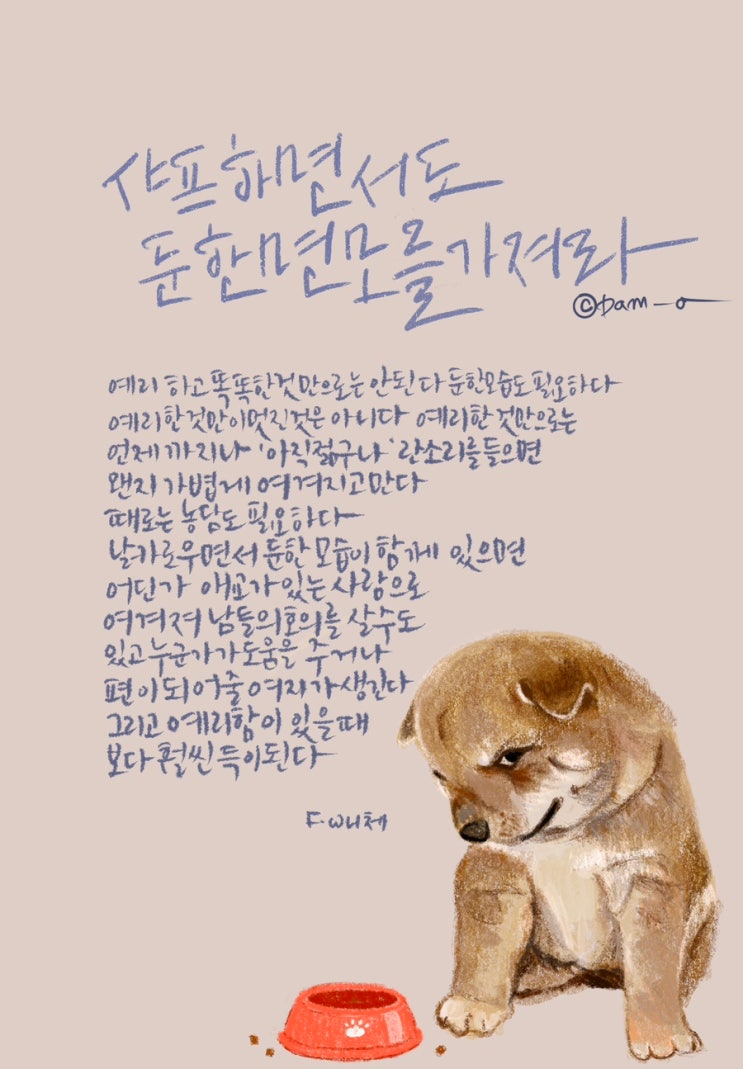 샤프하면서도
둔한면모를가져라
©Dam_o
예리 하고 똑똑한것 만으로는 안된다 둔한모습도 필요하다
예리한것만이멋진것은 아니다 예리한 것만으로는
언제 까지나 '아직젊구나' 란소리를들으면
왠지 가볍게 여겨지고만다
때로는 농담도 필요하다
날카로우면서 둔한 모습이 함께 있으면
어딘가 애교가 있는 사람으로
여겨져 남들의호의를 살수도
있고 누군가가도움을 주거나
편이되어줄 여지가 생긴다
그리고 예리함이 있을때
보다 훨씬 득이된다
F·W니체